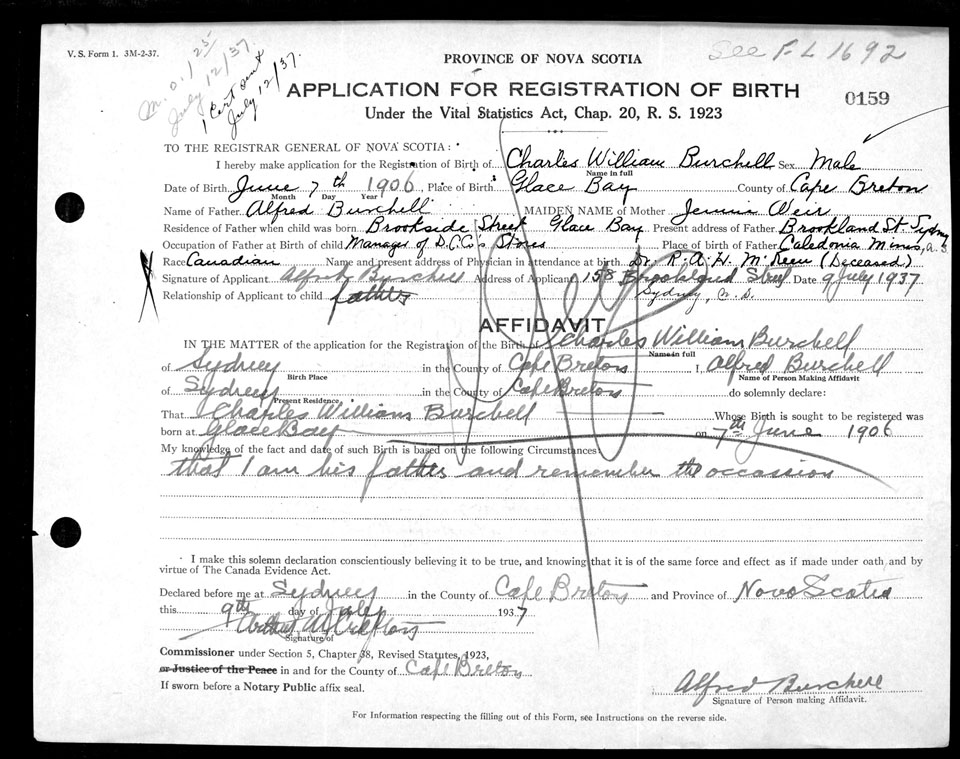 V. S. Form 1. 3M-2-37.
See F-L 1692
M.O. 1 25
July 12/37.
1 Cert sent
July 12/37.
PROVINCE OF NOVA SCOTIA
APPLICATION FOR REGISTRATION OF BIRTH
0159
Under the Vital Statistics Act, Chap. 20, R. S. 1923
TO THE REGISTRAR GENERAL OF NOVA SCOTIA:
I hereby make application for the Registration of Birth of Charles William Burchell Sex Male
Name in full
Date of Birth June 7th 1906, Place of Birth Glace Bay County of Cape Breton
Month Day Year
Name of Father Alfred Burchell MAIDEN NAME of Mother Jennie Weir
Residence of Father when child was born Brookside Street Glace Bay Present address of Father Brookland St. Sydney
Occupation of Father at Birth of child Manager of D.C.Co's Stores Place of birth of Father Caledonia Mines,
Race Canadian Name and present address of Physician in attendance at birth Dr. R. A. H. McKeen (Deceased)
Signature of Applicant Alfred Burchell Address of Applicant 158 Brookland Street Date 9 July 1937
Sydney,
Relationship of Applicant to child father
AFFIDAVIT
IN THE MATTER of the application for the Registration of the Birth of Charles William Burchell
Name in full
of Sydney in the County of Cape Breton I, Alfred Burchell
Birth Place Name of Person Making Affidavit
of Sydney in the County of Cape Breton do solemnly declare:
Present Residence
That Charles William Burchell Whose Birth is sought to be registered was
born at Glace Bay on 7th June 1906
My knowledge of the fact and date of such Birth is based on the following Circumstances:
that I am his father and remember the occassion
I make this solemn declaration conscientiously believing it to be true, and knowing that it is of the same force and effect as if made under oath and by
virtue of The Canada Evidence Act.
Declared before me at Sydney in the County of Cape Breton and Province of Nova Scotia
this 9th day of July 1937
Signature of
Commissioner under Section 5, Chapter 38, Revised Statutes, 1923,
or Justice of the Peace in and for the County of Cape Breton
If sworn before a Notary Public affix seal.
Alfred Burchell
Signature of Person making Affidavit.
For Information respecting the filling out of this Form, see Instructions on the reverse side.